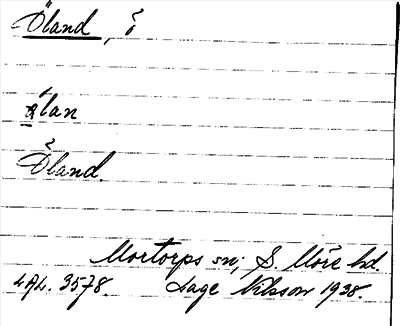 Öland, ö
ø̨lan
Öland.
Mortorps sn; S. Möre hd.
LAL. 3578. Lage Nilsson 1938.